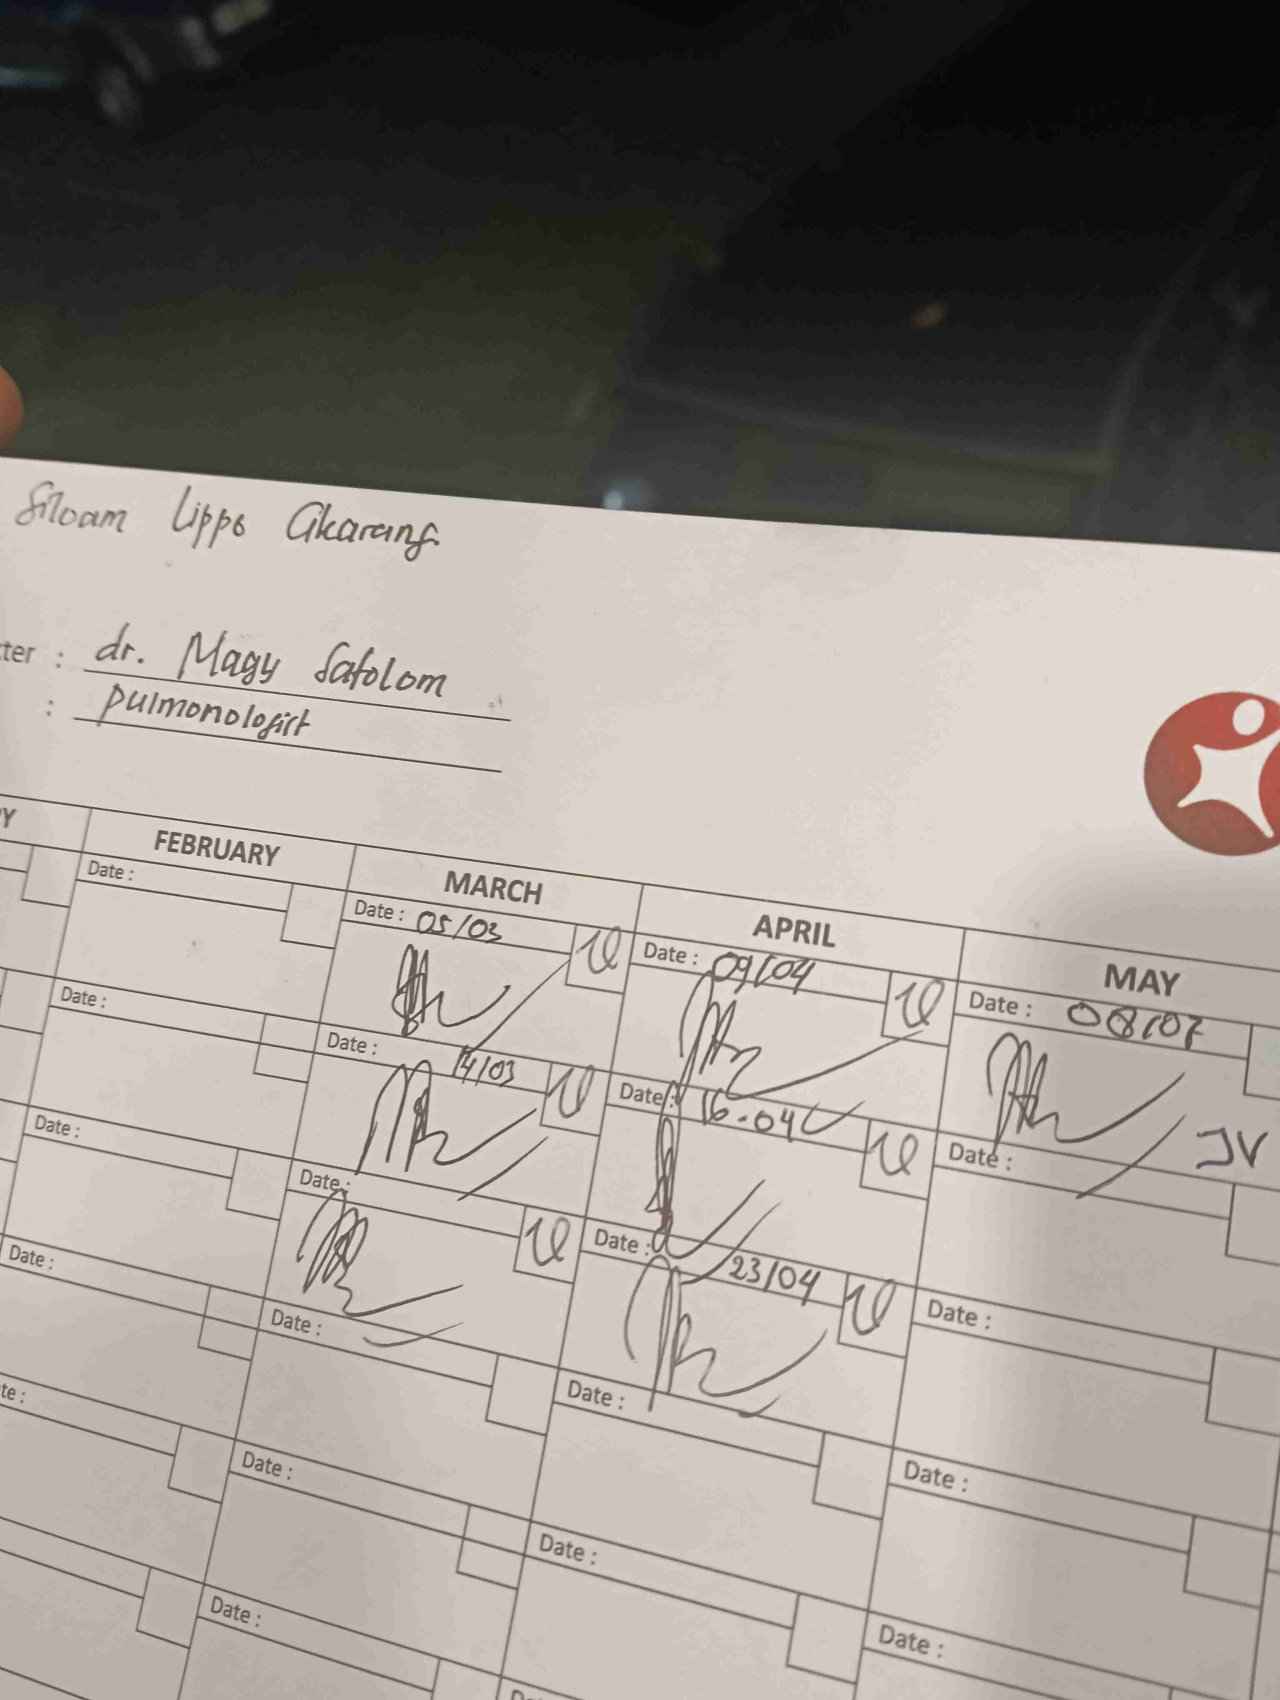 Siloam Lippo Cikarang
ter : dr. Magy Safolom
: pulmonologist
Y FEBRUARY MARCH APRIL MAY
Date : Date : 05/03 Date : 09/04 Date : 08/07
Date : Date : 14/03 Date : 16-04 Date :
JV
Date : Date : Date : 23/04 Date :
Date : Date : Date : Date :
te : Date : Date : Date :
Date :